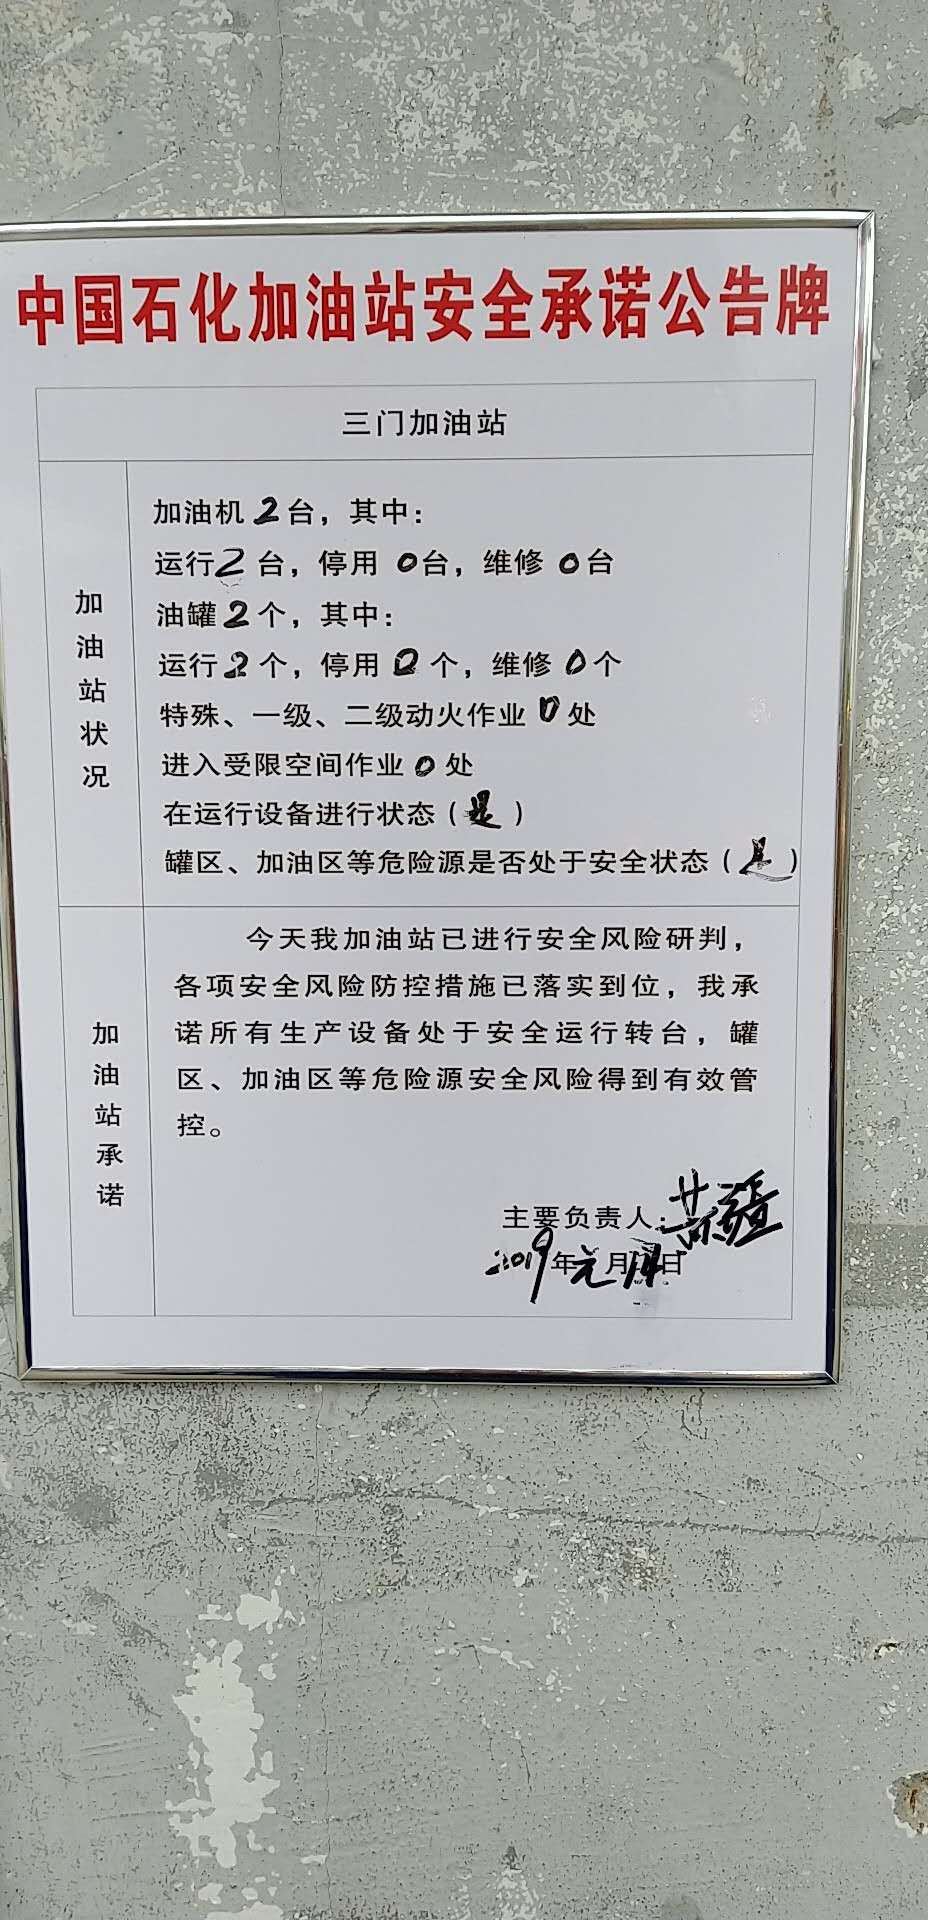 中国石化加油站安全承诺公告牌
三门加油站
加油站状况
加油机2台，其中：
运行2台，停用0台，维修0台
油罐2个，其中：
运行2个，停用0个，维修0个
特殊、一级、二级动火作业0处
进入受限空间作业0处
在运行设备进行状态（是）
罐区、加油区等危险源是否处于安全状态（是）
加油站承诺
今天我加油站已进行安全风险研判，
各项安全风险防控措施已落实到位，我承
诺所有生产设备处于安全运行转台，罐
区、加油区等危险源安全风险得到有效管
控。
主要负责人：
2019年元月14日